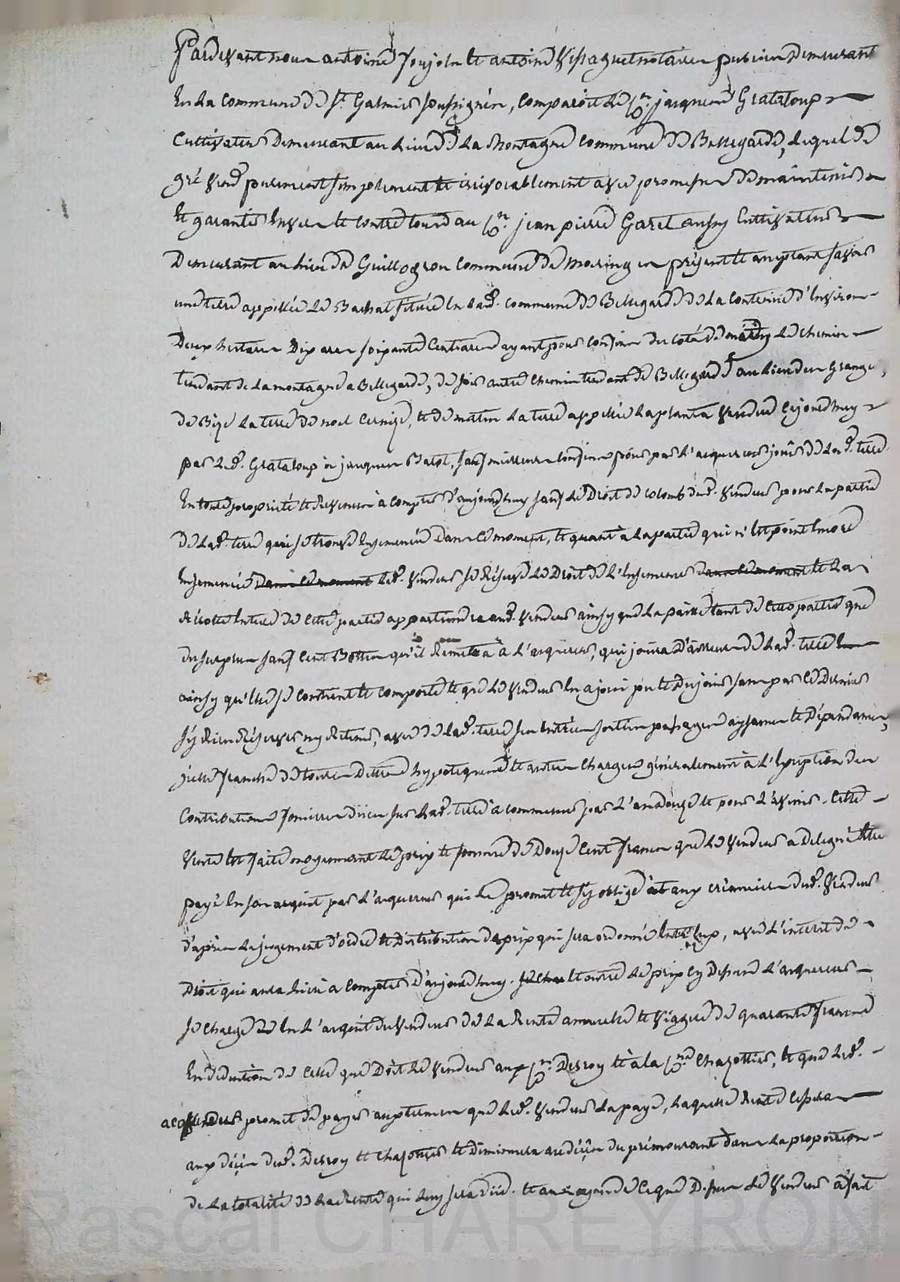 Pardevant nous antoine Joujoln et antoine Vissaguet notaires publics Demeurant
En La Commune de St. Galmier soussignés, Comparoit Le Sr. jacques Grataloup
Cultivateur Demeurant au Lieu de La Montagne Commune de Bellegarde, Lequel de
gré vend purement simplement et irrévocablement avec promesse de maintenir
et garantir Envers et Contre tous au Sr. jean pierre Garel aussy Cultivateur
Demeurant au Lieu de Guillogron Commune de Moring en présent et acceptant savoir
une terre appellée Le Bachat située En Lad. Commune de Bellegarde de La Contenue d'Environ
Deux hectares Dix ares soixante Centiares ayant pour Confins du coté de matin Le Chemin
tendant de La montagne a Bellegarde, de soir autre Chemin tendant de Bellegarde au Lieu des Granges,
de Bize La terre de noel Cernize, et de matin La terre appellée La planta vendue Cejourd'huy
par Led. Grataloup à jacques Batol, sauf meilleurs Confins pour par L'acquereur jouir de Lad. terre
En toute propriété et Revenus à Compter d'aujourd'huy sauf Le Droit de Colons dud. vendeur pour La partie
de Lad. terre qui se trouve Ensemencée dans Ce moment, et quant à La partie qui n'Est point Encore
Ensemencée dans Ce moment Led. vendeur se Réserve Le Droit de L'Ensemencer dans Ce moment et La
Récolte Entiere de Cette partie appartiendra aud. vendeur ainsy que La paille tant de Cette partie que
du surplus sauf Cent Bottes qu'il Remettra à L'acquereur, qui jouira D'ailleurs de Lad. terre
ainsy qu'Elle se Contient et Comporte et que Le vendeur En a joui pu et Du jouir sans par Ce Dernier
s'y Rien Réserver ny Retenir, avec de Lad. terre ses Entrées sorties passages aysances et Dépendances,
icelle franche de toutes Dettes hypoteques et autres Charges généralement à L'Exception des
Contributions foncieres dües sur Lad. terre à commencer par L'an douze et pour L'avenir. Cette
vente Est faite moyennant Le prix et somme de Douze Cent francs que Le vendeur a délégué Etre
payé En son acquit par L'acquereur qui Le promet et s'y oblige aux créanciers dud. vendeur
d'après Le jugement d'ordre et Distribution de prix qui sera ordonné Entr'Eux, avec L'interet de
Droit qui aura Lieu à Compter d'aujourd'huy. Et outre Le prix Cy Dessus L'acquereur
se Charge En L'acquit du vendeur de La Rente annuelle et viagere de quarante francs
En déduction de Celle que Doit Le vendeur aux Sr. Derroy et à la Sr. Chazottier, et que Led.
acquereur promet de payer aux termes que Led. vendeur La paye, Laquelle Rente Cessera
aux décés dud. Derroy et Chazottier et Diminuera au décés du prémourant dans La proportion
de La totalité de La Rente qui Leur sera düe. et au moyen de Ce que Dessus Le vendeur a fait
Pascal CHAREYRON